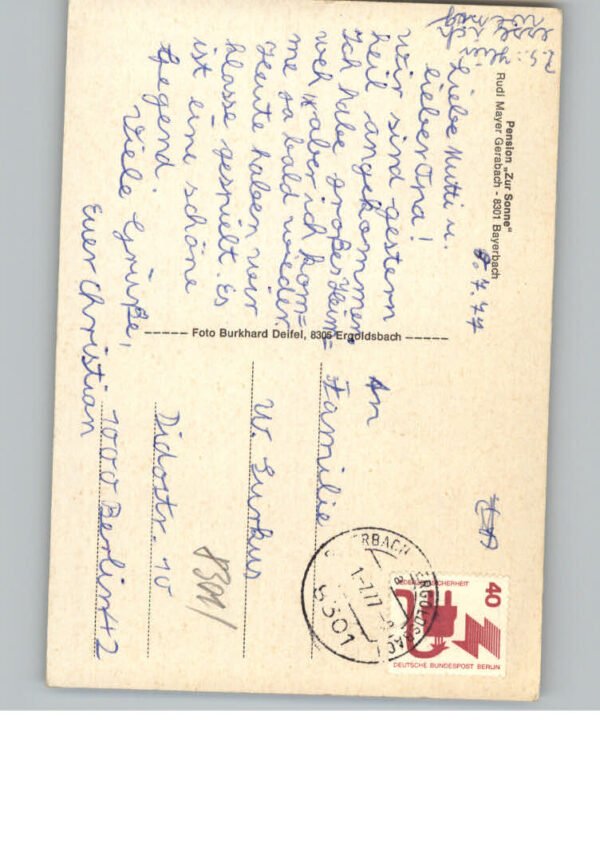 Pension „Zur Sonne"
Rudi Mayer Gerabach - 8301 Bayerbach
8.7.77
Liebe Mutti u.
liebe Oma!
Wir sind gestern
heil angekommen
Ich habe großes Heim=
weh, aber ich kom=
me ja bald wieder.
Heute haben wir
klasse gespielt. Es
ist eine schöne
Gegend.
Viele Grüße,
Euer Christian
P.S.: Hier
esse ich
wenig
Foto Burkhard Deifel, 8305 Ergoldsbach
An
Familie
W. Gurkus
Didostr. 10
1000 Berlin 42
8301/
BAYERBACH
ERGOLDSBACH
8301
40
DEUTSCHE BUNDESPOST BERLIN